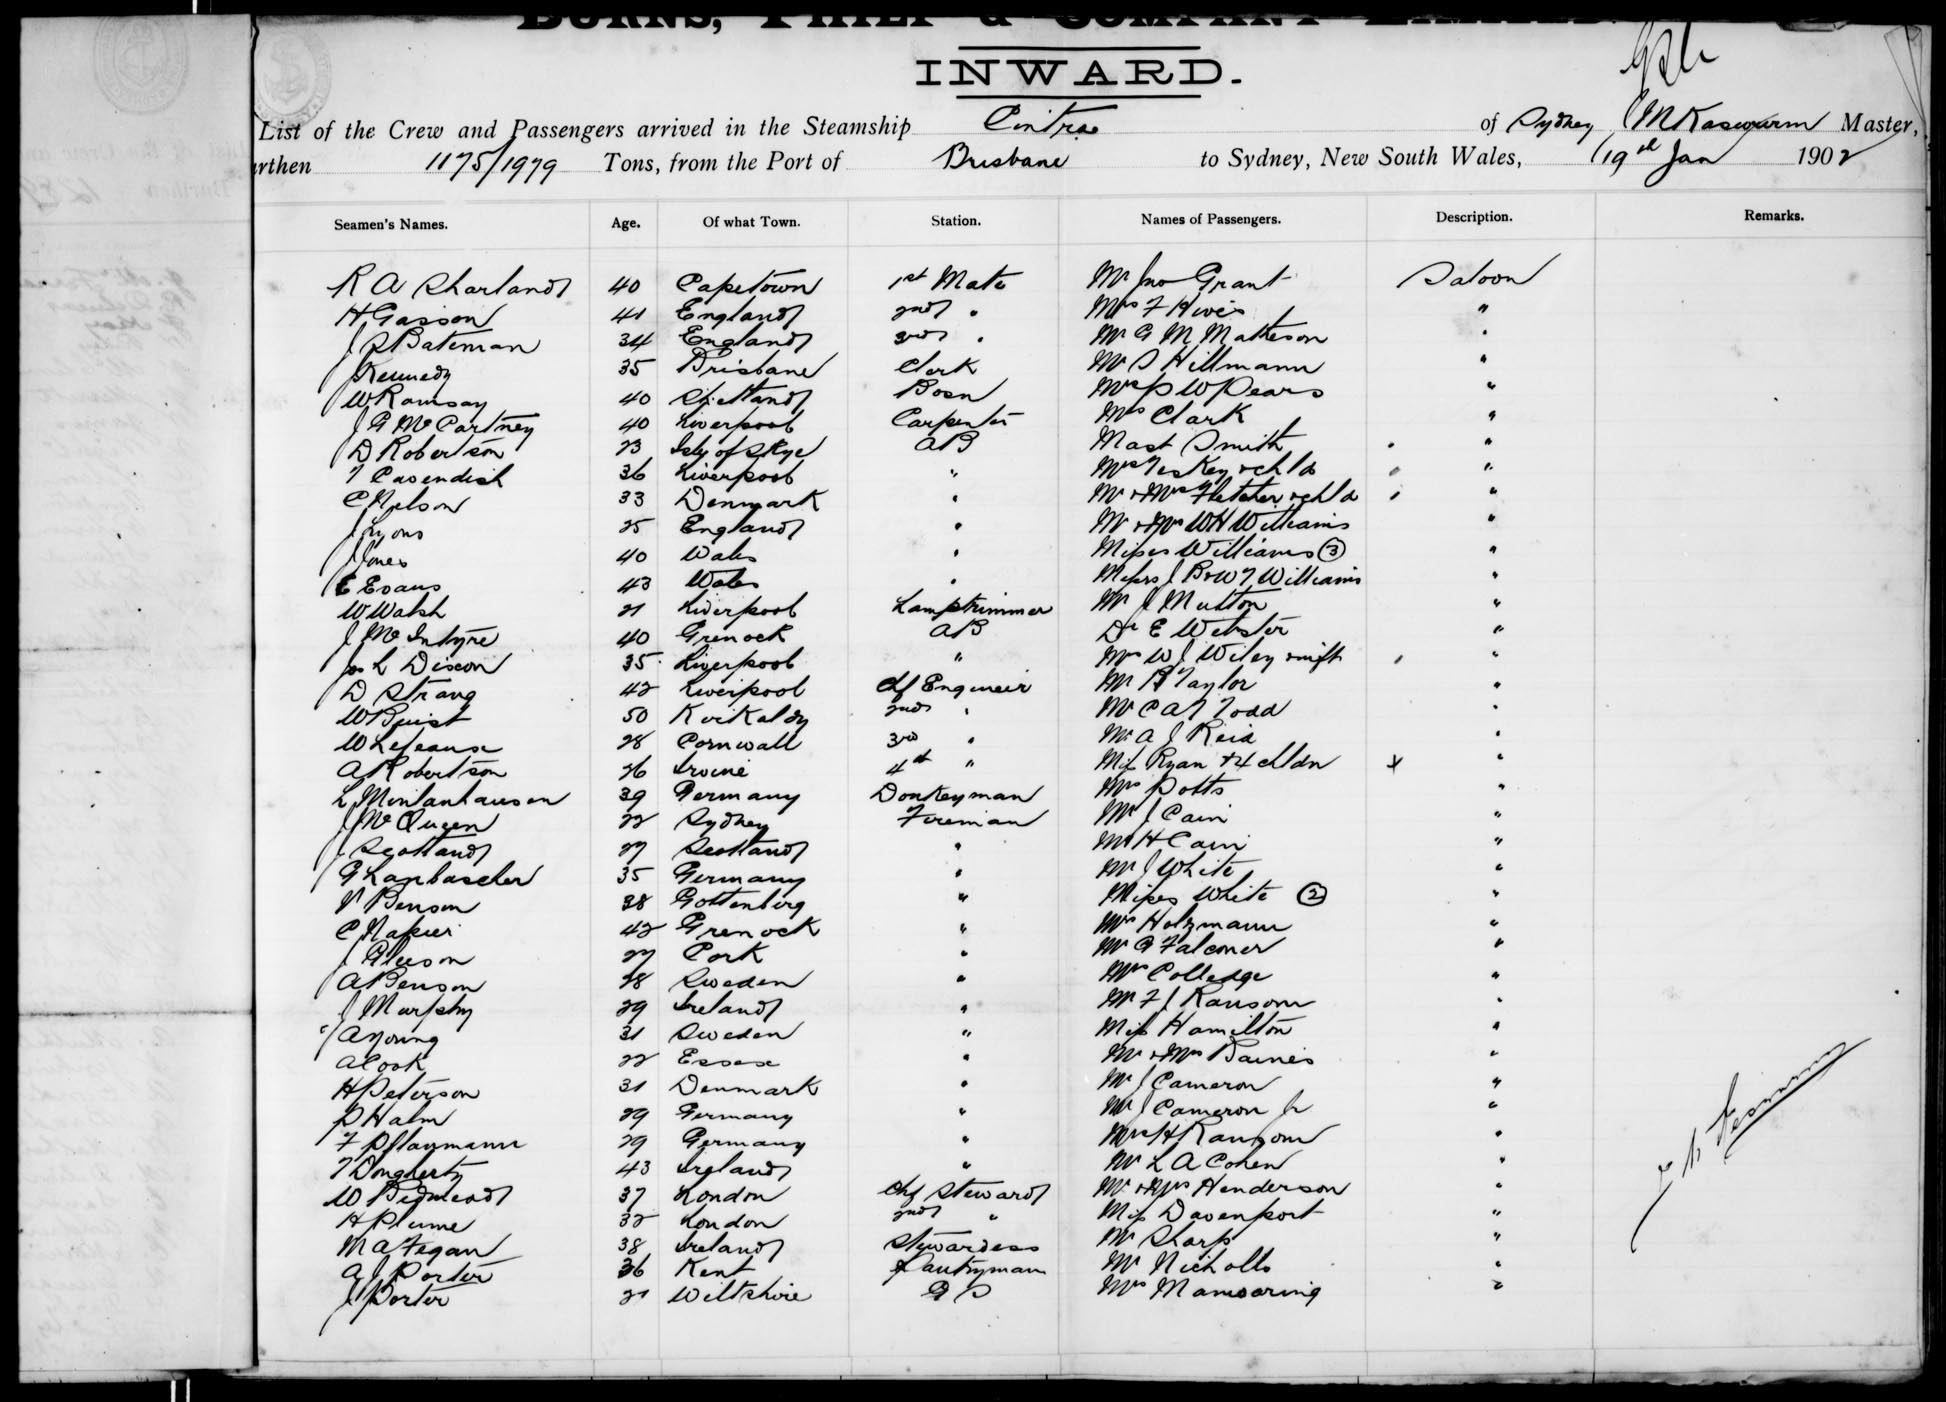 BURNS, PHILP & COMPANY LIMITED
INWARD.
List of the Crew and Passengers arrived in the Steamship Cintra of Sydney Master,
urthen 1175/1979 Tons, from the Port of Brisbane to Sydney, New South Wales, 19th Jan 1902
Seamen's Names. Age. Of what Town. Station. Names of Passengers. Description. Remarks.
R A Sharland 40 Capetown 1st Mate Mr Jno Grant Saloon
H Gasson 41 England 2nd " Mrs F Hives "
J S Bateman 34 England 3rd " Mr G M Matheson "
J Kennedy 35 Brisbane Clerk Mr S Hillmann "
W Ramsay 40 Shetland Bosn Mrs P W Pears "
J G McCartney 40 Liverpool Carpenter Mrs Clark "
D Robertson 23 Isle of Skye AB Mast Smith "
T Cavendish 36 Liverpool " Mrs & chld "
C Nelson 33 Denmark " Mr & Mrs Fletcher & chld "
J Lyons 25 England " Mr & Mrs W H Williams "
J Jones 40 Wales " Misses Williams (3) "
E Evans 43 Wales " Messrs J B & W T Williams "
W Walsh 21 Liverpool Lamptrimmer Mr J Mutton "
J McIntyre 40 Grenock AB Dr E Webster "
Jos L Dixon 35 Liverpool " Mrs W J Wiley & inft "
D Strang 42 Liverpool Chf Engineer Mr B Taylor "
W Buist 50 Kirkaldy 2nd " Mr C A T Todd "
W Lejeaux 28 Cornwall 3rd " Mr A J Reid "
A Robertson 26 Irvine 4th " Miss Ryan & 4 chldn x "
L Mintanhausen 39 Germany Donkeyman Mrs Potts "
J McQueen 22 Sydney Fireman Mr J Cain "
J Scotland 27 Scotland " Mr H Cain "
G Lanbascher 35 Germany " Mr J White "
V Benson 38 Gottenberg " Misses White (2) "
C Napier 42 Grenock " Mrs Holzmann "
J Gleeson 27 Cork " Mr G Falconer "
A Benson 28 Sweden " Mrs Colledge "
J Murphy 29 Ireland " Mr F J Ransom "
A Young 31 Sweden " Miss Hamilton "
A Cook 22 Essex " Mr & Mrs Baines "
H Peterson 31 Denmark " Mr J Cameron "
P Halm 29 Germany " Mr J Cameron Jr "
F Pflaumann 29 Germany " Mrs H Ransom "
T Dougherty 43 Ireland " Mr L A Cohen "
W Bidmead 37 London Chf Steward Mr & Mrs Henderson "
H Plume 32 London 2nd " Miss Davenport "
M A Fegan 38 Ireland Stewardess Mr Sharp "
A J Porter 36 Kent Pantryman Mr Nicholls "
J Porter 21 Wiltshire G S Mrs Manwaring "